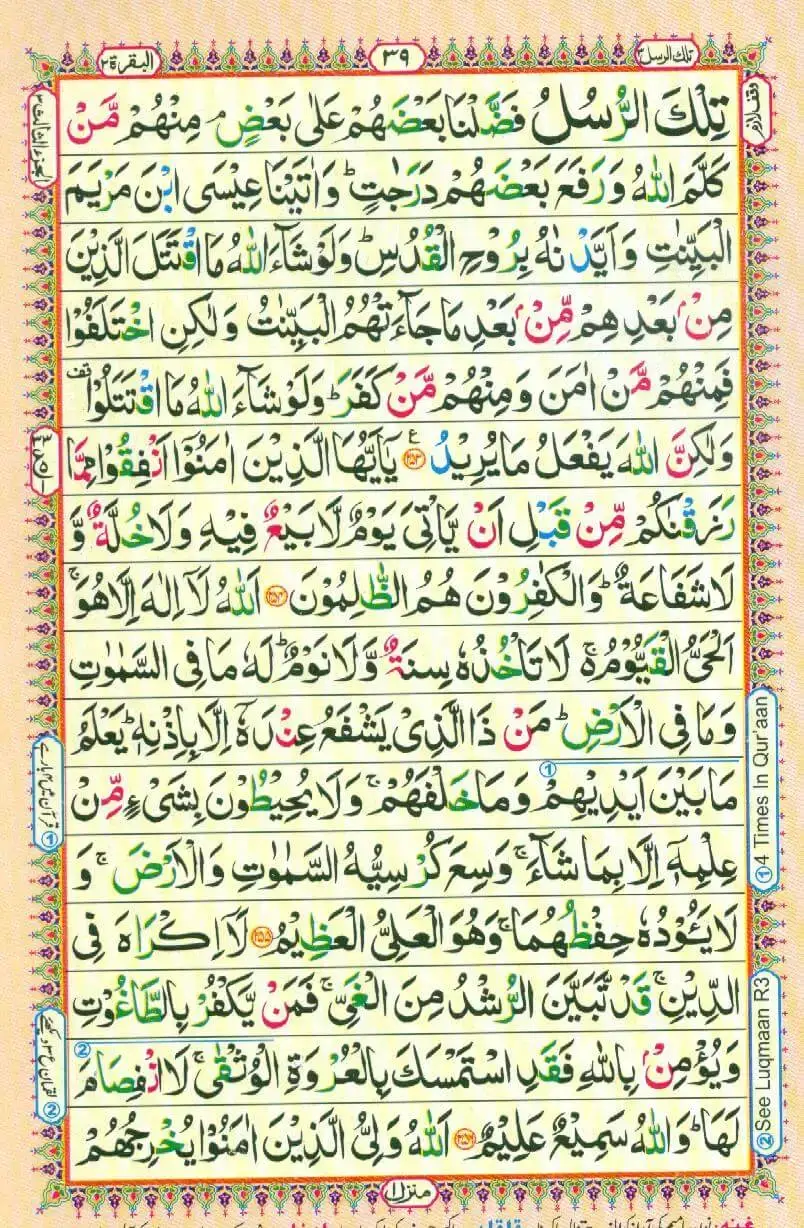 تلك الرسل ٣
٣٩
البقرة ٢
وقف لازم
الجزء الثالث ٣
تِلْكَ الرُّسُلُ فَضَّلْنَا بَعْضَهُمْ عَلٰى بَعْضٍ ۘ مِنْهُمْ مَّنْ
كَلَّمَ اللّٰهُ وَرَفَعَ بَعْضَهُمْ دَرَجٰتٍ ؕ وَاٰتَيْنَا عِيْسَى ابْنَ مَرْيَمَ
الْبَيِّنٰتِ وَاَيَّدْنٰهُ بِرُوْحِ الْقُدُسِ ؕ وَلَوْ شَآءَ اللّٰهُ مَا اقْتَتَلَ الَّذِيْنَ
مِنْۢ بَعْدِهِمْ مِّنْۢ بَعْدِ مَا جَآءَتْهُمُ الْبَيِّنٰتُ وَلٰكِنِ اخْتَلَفُوْا
فَمِنْهُمْ مَّنْ اٰمَنَ وَمِنْهُمْ مَّنْ كَفَرَ ؕ وَلَوْ شَآءَ اللّٰهُ مَا اقْتَتَلُوْا قف
وَلٰكِنَّ اللّٰهَ يَفْعَلُ مَا يُرِيْدُ ﴿۲۵۳﴾ يٰۤاَيُّهَا الَّذِيْنَ اٰمَنُوْۤا اَنْفِقُوْا مِمَّا
رَزَقْنٰكُمْ مِّنْ قَبْلِ اَنْ يَّاْتِىَ يَوْمٌ لَّا بَيْعٌ فِيْهِ وَلَا خُلَّةٌ وَّ
لَا شَفَاعَةٌ ؕ وَالْكٰفِرُوْنَ هُمُ الظّٰلِمُوْنَ ﴿۲۵۴﴾ اَللّٰهُ لَاۤ اِلٰهَ اِلَّا هُوَ ۚ
اَلْحَىُّ الْقَيُّوْمُ ۚ لَا تَاْخُذُهٗ سِنَةٌ وَّلَا نَوْمٌ ؕ لَهٗ مَا فِى السَّمٰوٰتِ
وَمَا فِى الْاَرْضِ ؕ مَنْ ذَا الَّذِىْ يَشْفَعُ عِنْدَهٗۤ اِلَّا بِاِذْنِهٖ ؕ يَعْلَمُ
①
مَا بَيْنَ اَيْدِيْهِمْ وَمَا خَلْفَهُمْ ۚ وَلَا يُحِيْطُوْنَ بِشَىْءٍ مِّنْ
عِلْمِهٖۤ اِلَّا بِمَا شَآءَ ۚ وَسِعَ كُرْسِيُّهُ السَّمٰوٰتِ وَالْاَرْضَ ۚ وَ
لَا يَـُٔوْدُهٗ حِفْظُهُمَا ۚ وَهُوَ الْعَلِىُّ الْعَظِيْمُ ﴿۲۵۵﴾ لَاۤ اِكْرَاهَ فِى
الدِّيْنِ ۚ قَدْ تَّبَيَّنَ الرُّشْدُ مِنَ الْغَىِّ ۚ فَمَنْ يَّكْفُرْ بِالطَّاغُوْتِ
②
وَيُؤْمِنْۢ بِاللّٰهِ فَقَدِ اسْتَمْسَكَ بِالْعُرْوَةِ الْوُثْقٰى ۚ لَا انْفِصَامَ
لَهَا ؕ وَاللّٰهُ سَمِيْعٌ عَلِيْمٌ ﴿۲۵۶﴾ اَللّٰهُ وَلِىُّ الَّذِيْنَ اٰمَنُوْا يُخْرِجُهُمْ
① 4 Times In Qur'aan
② See Luqmaan R3
① قرآن میں ۴ بار ہے
منزل ١